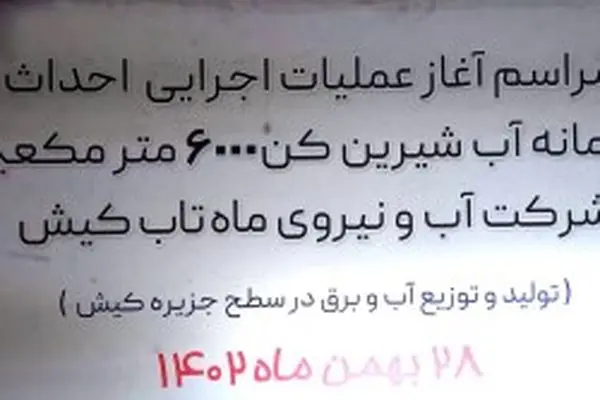 مراسم آغاز عملیات اجرایی احداث
سامانه آب شیرین کن ۶۰۰۰ متر مکعبی
شرکت آب و نیروی ماه تاب کیش
(تولید و توزیع آب و برق در سطح جزیره کیش)
۲۸ بهمن ماه ۱۴۰۲